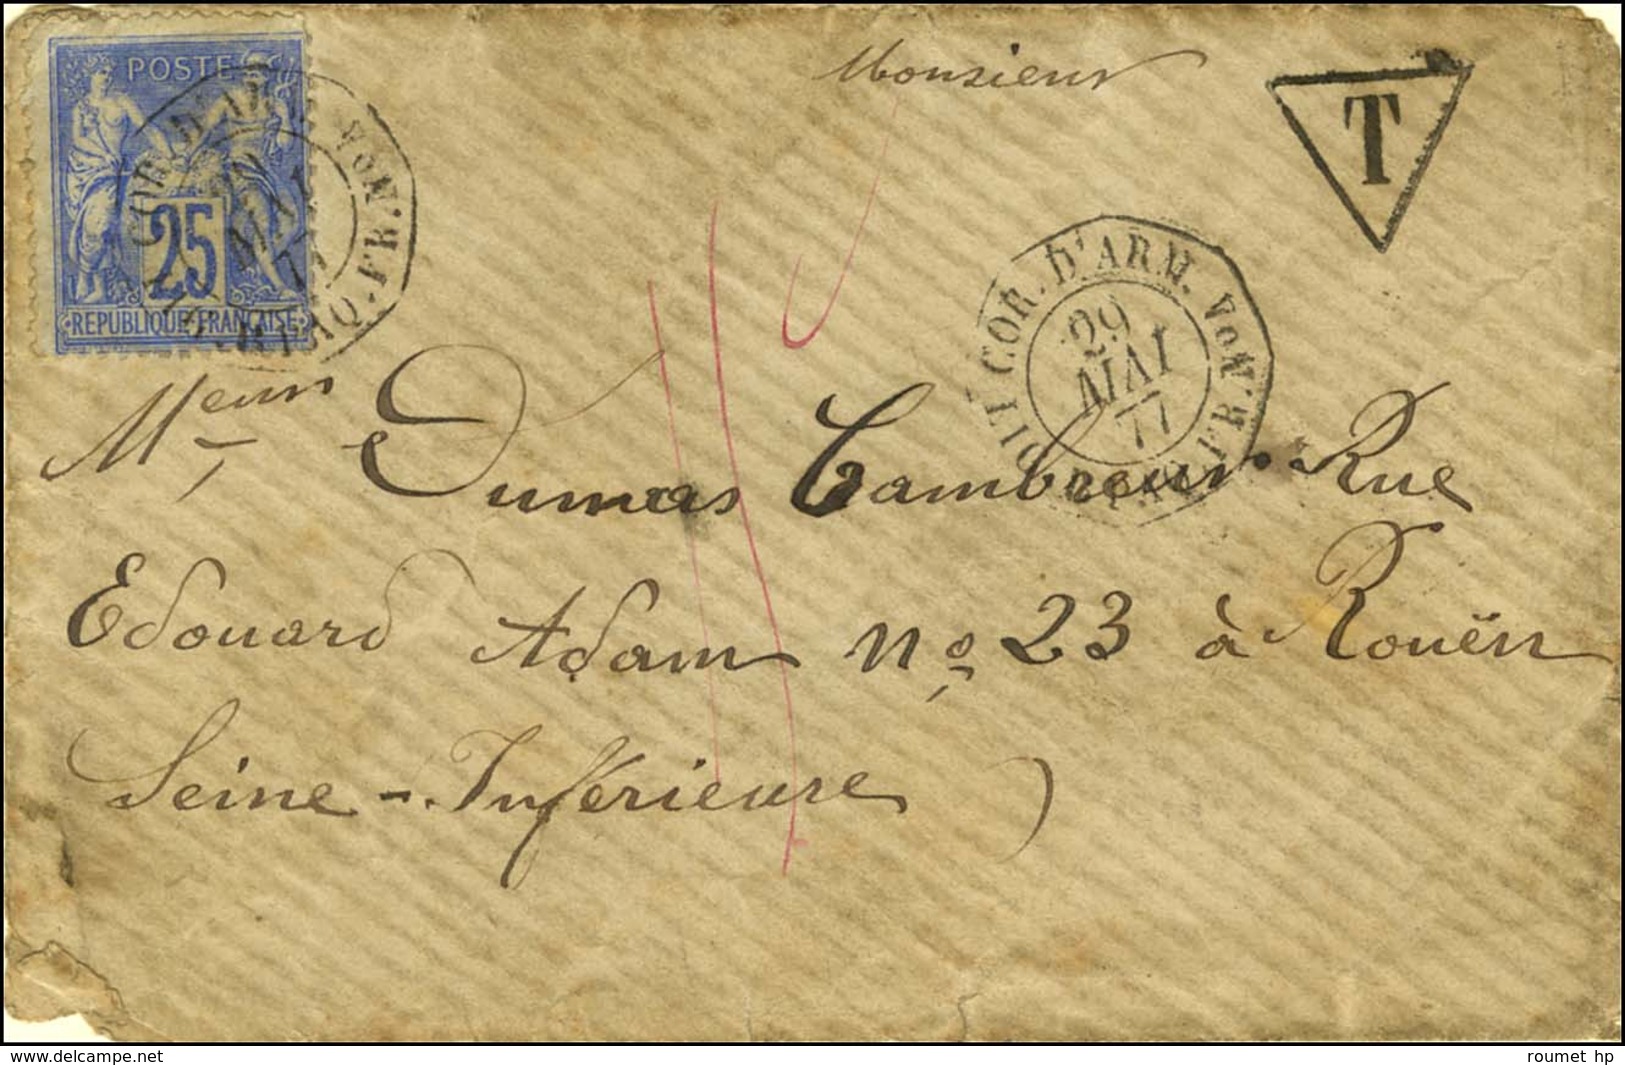 POSTE
25
REPUBLIQUE FRANÇAISE
MAI
Monsieur
T
COR. D'ARM. VON. FR.
29
MAI
77
Meur Dumas Cambreur Rue
Edouard Adam No 23 à Rouën
Seine-Inférieure
www.delcampe.net
roumet hp